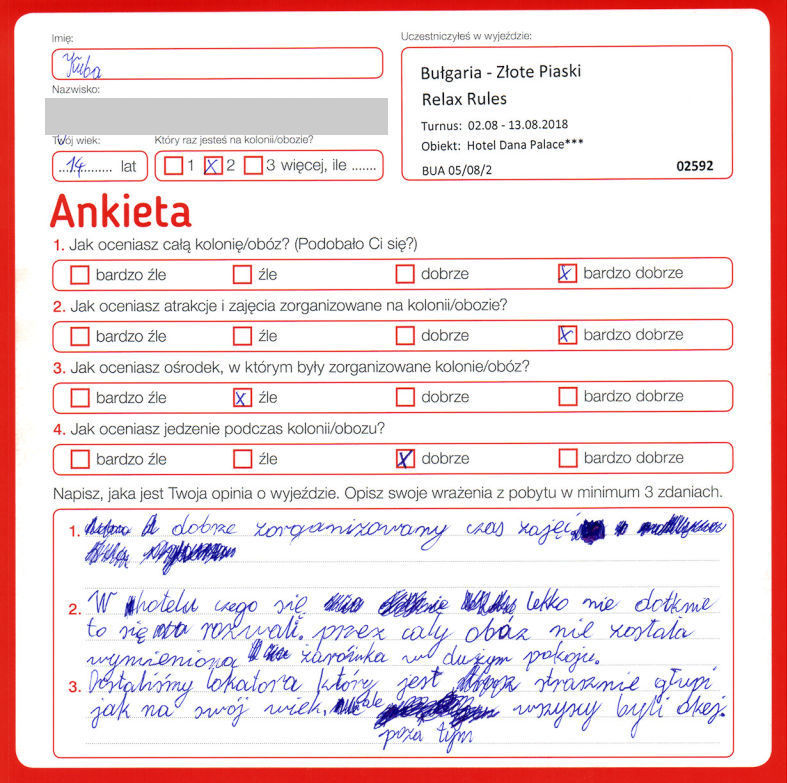 Imię:
Kuba
Nazwisko:
Twój wiek:
...14......... lat
Który raz jesteś na kolonii/obozie?
1 x 2 3 więcej, ile .......
Uczestniczyłeś w wyjeździe:
Bułgaria - Złote Piaski
Relax Rules
Turnus: 02.08 - 13.08.2018
Obiekt: Hotel Dana Palace***
BUA 05/08/2 02592
Ankieta
1. Jak oceniasz całą kolonię/obóz? (Podobało Ci się?)
bardzo źle źle dobrze x bardzo dobrze
2. Jak oceniasz atrakcje i zajęcia zorganizowane na kolonii/obozie?
bardzo źle źle dobrze x bardzo dobrze
3. Jak oceniasz ośrodek, w którym były zorganizowane kolonie/obóz?
bardzo źle x źle dobrze bardzo dobrze
4. Jak oceniasz jedzenie podczas kolonii/obozu?
bardzo źle źle x dobrze bardzo dobrze
Napisz, jaka jest Twoja opinia o wyjeździe. Opisz swoje wrażenia z pobytu w minimum 3 zdaniach.
1. dobrze zorganizowany czas zajęć
2. W hotelu czego się lekko nie dotknie
to się rozwali. przez cały obóz nie została
wymieniona żarówka w dużym pokoju.
3. Dostaliśmy lokatora który jest strasznie głupi
jak na swój wiek, ale wszyscy byli okej.
poza tym